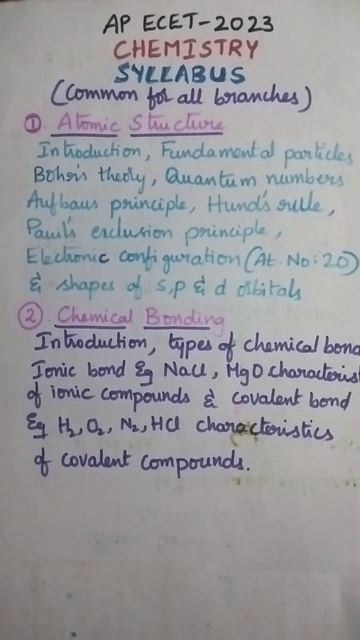 AP ECET-2023
CHEMISTRY
SYLLABUS
(Common for all branches)
① Atomic Structure
Introduction, Fundamental particles
Bohr's theory, Quantum numbers
Aufbaus principle, Hund's rule,
Pauli's exclusion principle,
Electronic configuration (At. No: 20)
& shapes of s, p & d orbitals
② Chemical Bonding
Introduction, types of chemical bond
Ionic bond Eg NaCl, MgO characterist
of ionic compounds & covalent bond
Eg H₂, O₂, N₂, HCl characteristics
of covalent compounds.